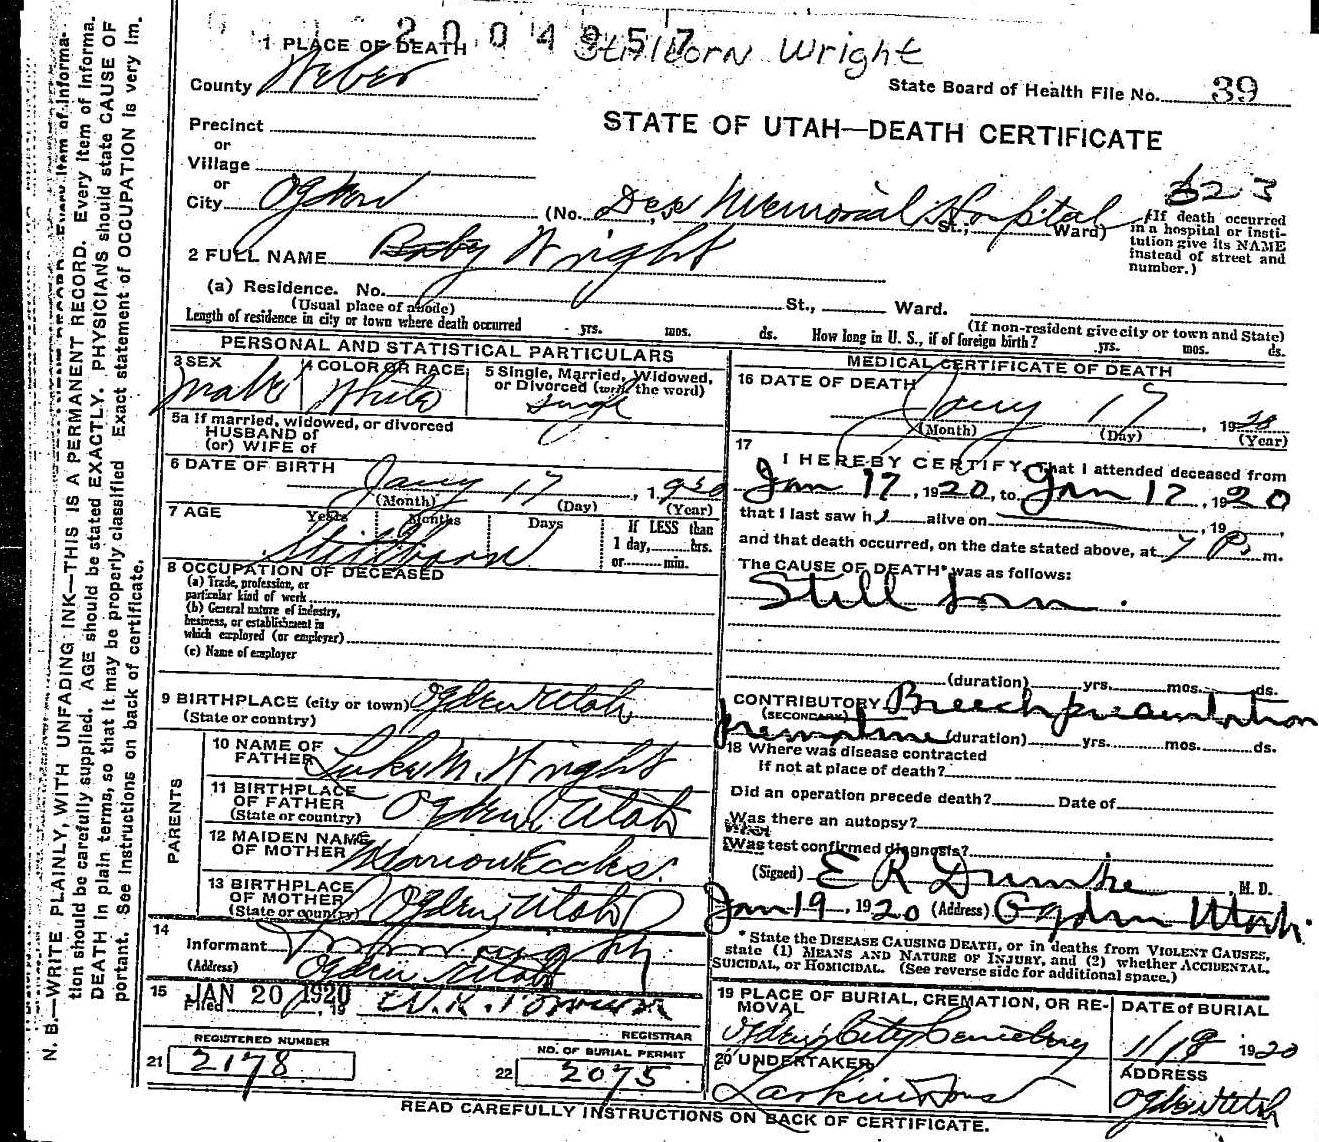 2004957
Stillborn Wright
1 PLACE OF DEATH
County Weber
State Board of Health File No. 39
STATE OF UTAH—DEATH CERTIFICATE
Precinct
or
Village
or
City Ogden (No. Dee Memorial Hospital St.; Ward)
323
(If death occurred
in a hospital or insti-
tution give its NAME
instead of street and
number.)
2 FULL NAME Baby Wright
(a) Residence. No. St., Ward.
(Usual place of abode) (If non-resident give city or town and State)
Length of residence in city or town where death occurred yrs. mos. ds. How long in U. S., if of foreign birth? yrs. mos. ds.
PERSONAL AND STATISTICAL PARTICULARS
3 SEX Male
4 COLOR OR RACE White
5 Single, Married, Widowed,
or Divorced (write the word)
Single
5a If married, widowed, or divorced
HUSBAND of
(or) WIFE of
6 DATE OF BIRTH
Jany 17, 1920
(Month) (Day) (Year)
7 AGE Years Months Days If LESS than
1 day, hrs.
or min.
Stillborn
8 OCCUPATION OF DECEASED
(a) Trade, profession, or
particular kind of work
(b) General nature of industry,
business, or establishment in
which employed (or employer)
(c) Name of employer
9 BIRTHPLACE (city or town) Ogden Utah
(State or country)
PARENTS
10 NAME OF
FATHER Luke M. Wright
11 BIRTHPLACE
OF FATHER Ogden Utah
(State or country)
12 MAIDEN NAME
OF MOTHER Marion Eccles
13 BIRTHPLACE
OF MOTHER Ogden, Utah
(State or country)
14
Informant
(Address) Ogden Utah
15 JAN 20 1920
Filed , 19
REGISTRAR
REGISTERED NUMBER
21 2178
NO. OF BURIAL PERMIT
22 2075
MEDICAL CERTIFICATE OF DEATH
16 DATE OF DEATH
Jany 17, 1920
(Month) (Day) (Year)
17
I HEREBY CERTIFY, that I attended deceased from
Jan 17, 1920, to Jan 17, 1920
that I last saw h alive on , 19 ,
and that death occurred, on the date stated above, at 7 P. m.
The CAUSE OF DEATH* was as follows:
Still born.
(duration) yrs. mos. ds.
CONTRIBUTORY Breech presentation
(SECONDARY)
premature (duration) yrs. mos. ds.
18 Where was disease contracted
If not at place of death?
Did an operation precede death? Date of
Was there an autopsy?
What
Was test confirmed diagnosis?
(Signed) E R Dumke, M. D.
Jan 19, 1920 (Address) Ogden Utah.
* State the DISEASE CAUSING DEATH, or in deaths from VIOLENT CAUSES,
state (1) MEANS AND NATURE OF INJURY, and (2) whether ACCIDENTAL,
SUICIDAL, or HOMICIDAL. (See reverse side for additional space.)
19 PLACE OF BURIAL, CREMATION, OR RE-
MOVAL
Ogden City Cemetery
DATE of BURIAL
1/19 1920
20 UNDERTAKER
Larkin & Sons
ADDRESS
Ogden Utah
READ CAREFULLY INSTRUCTIONS ON BACK OF CERTIFICATE.
N. B.—WRITE PLAINLY, WITH UNFADING INK—THIS IS A PERMANENT RECORD. Every item of informa-
tion should be carefully supplied. AGE should be stated EXACTLY. PHYSICIANS should state CAUSE OF
DEATH in plain terms, so that it may be properly classified. Exact statement of OCCUPATION is very im-
portant. See instructions on back of certificate.